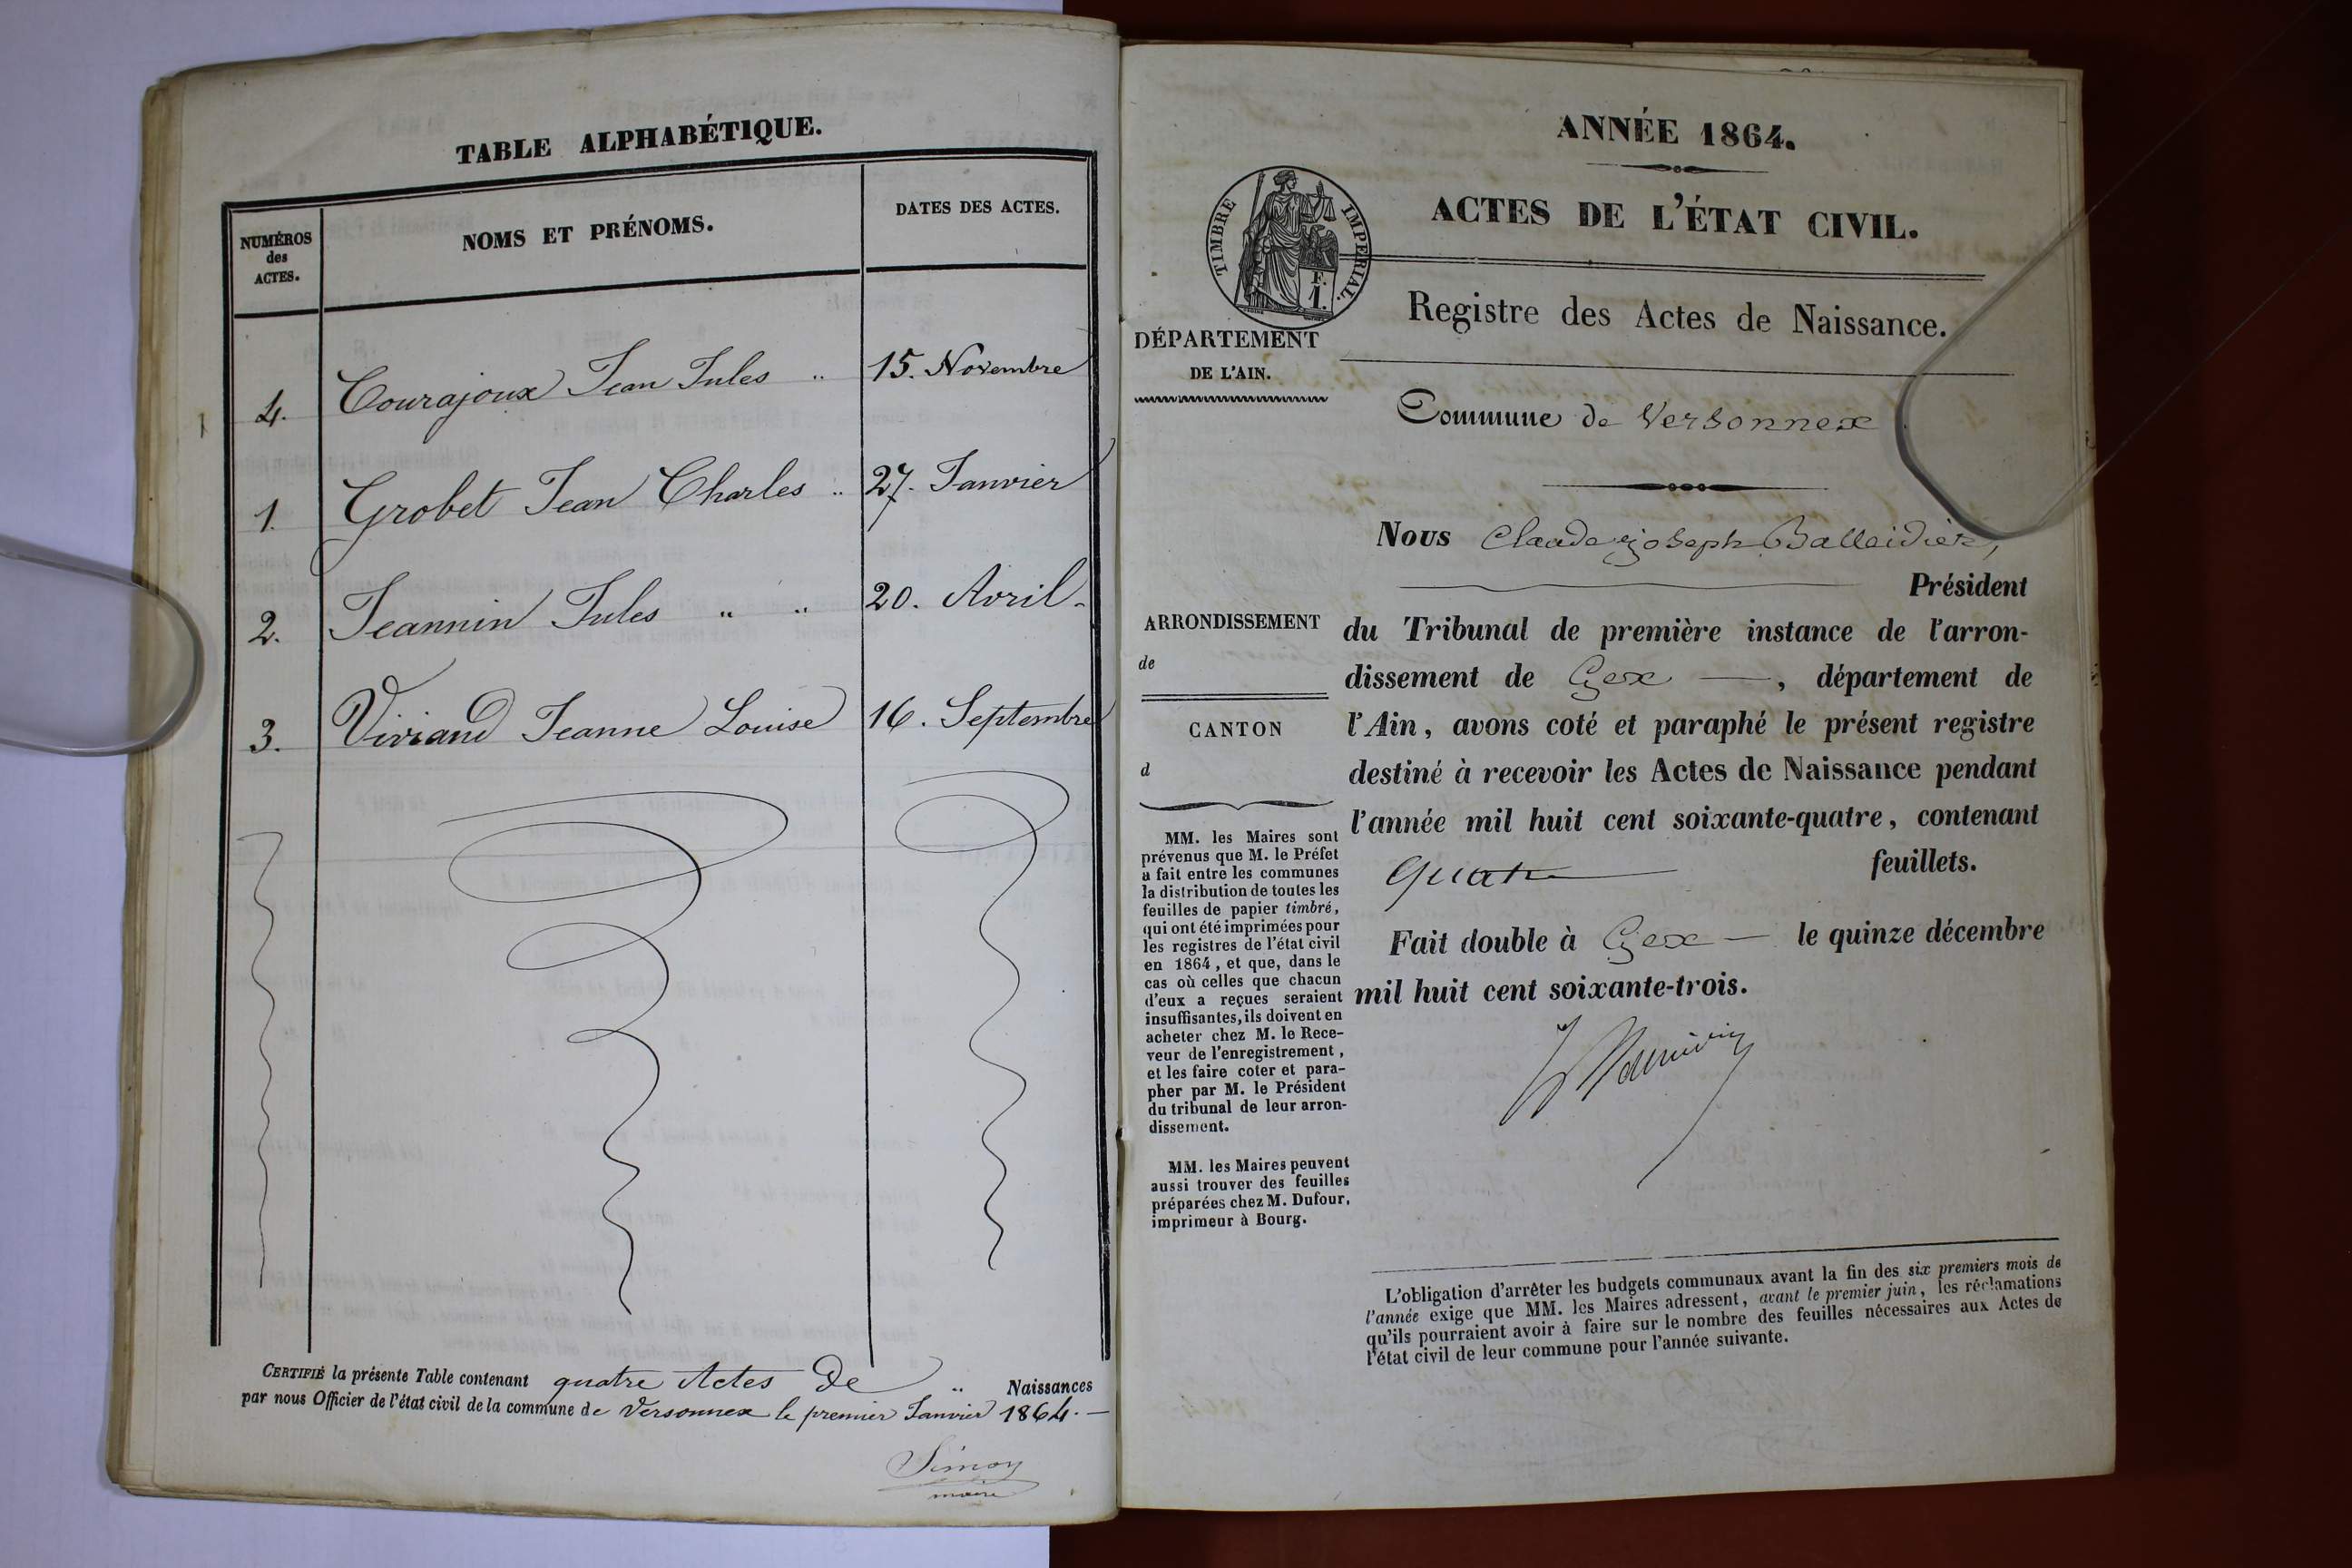 TABLE ALPHABÉTIQUE.
NUMÉROS
des
ACTES.
NOMS ET PRÉNOMS.
DATES DES ACTES.
4. Courajoux Jean Jules .. 15. Novembre
1. Grobet Jean Charles .. 27. Janvier
2. Jeannin Jules .. .. 20. Avril -
3. Viviand Jeanne Louise 16. Septembre
CERTIFIÉ la présente Table contenant quatre Actes De .. Naissances
par nous Officier de l'état civil de la commune de Versonnex le premier Janvier 1864. -
Simon
maire
ANNÉE 1864.
ACTES DE L'ÉTAT CIVIL.
TIMBRE IMPERIAL.
F.
1.
DÉPARTEMENT
DE L'AIN.
Registre des Actes de Naissance.
Commune de Versonnex
Nous Claude Joseph Balleidier,
Président
du Tribunal de première instance de l'arron-
dissement de Gex —, département de
l'Ain, avons coté et paraphé le présent registre
destiné à recevoir les Actes de Naissance pendant
l'année mil huit cent soixante-quatre, contenant
quatre feuillets.
Fait double à Gex — le quinze décembre
mil huit cent soixante-trois.
ARRONDISSEMENT
de
CANTON
d
MM. les Maires sont
prévenus que M. le Préfet
a fait entre les communes
la distribution de toutes les
feuilles de papier timbré,
qui ont été imprimées pour
les registres de l'état civil
en 1864, et que, dans le
cas où celles que chacun
d'eux a reçues seraient
insuffisantes, ils doivent en
acheter chez M. le Rece-
veur de l'enregistrement,
et les faire coter et para-
pher par M. le Président
du tribunal de leur arron-
dissement.
MM. les Maires peuvent
aussi trouver des feuilles
préparées chez M. Dufour,
imprimeur à Bourg.
L'obligation d'arrêter les budgets communaux avant la fin des six premiers mois de
l'année exige que MM. les Maires adressent, avant le premier juin, les réclamations
qu'ils pourraient avoir à faire sur le nombre des feuilles nécessaires aux Actes de
l'état civil de leur commune pour l'année suivante.